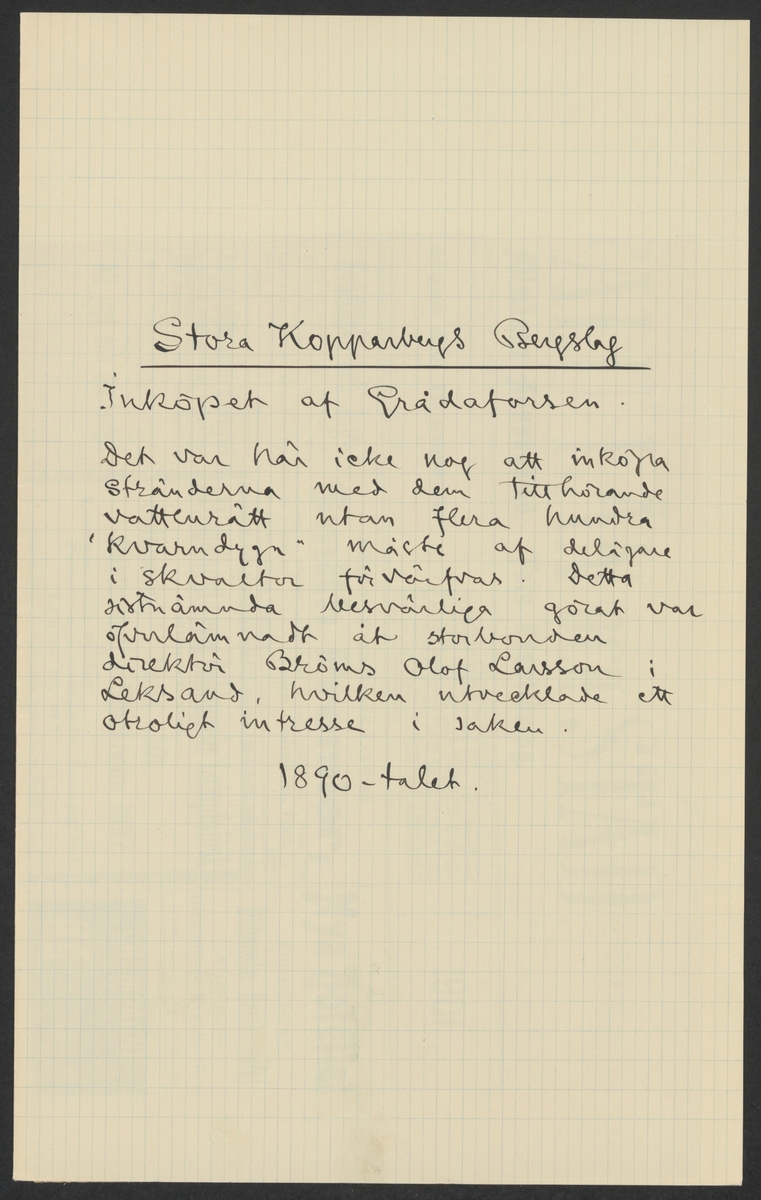 Stora Kopparbergs Bergslag
Inköpet af Grådaforsen.
Det var här icke nog att inköpa
stränderna med dem tillhörande
vattenrätt utan flera hundra
"kvarndygn" måste af delägare
i skvaltor förvärfvas. Detta
sistnämnda besvärliga görat var
öfverlämnadt åt storbonden
direktör Bröms Olof Larsson i
Leksand, hvilken utvecklade ett
otroligt intresse i saken.
1890-talet.